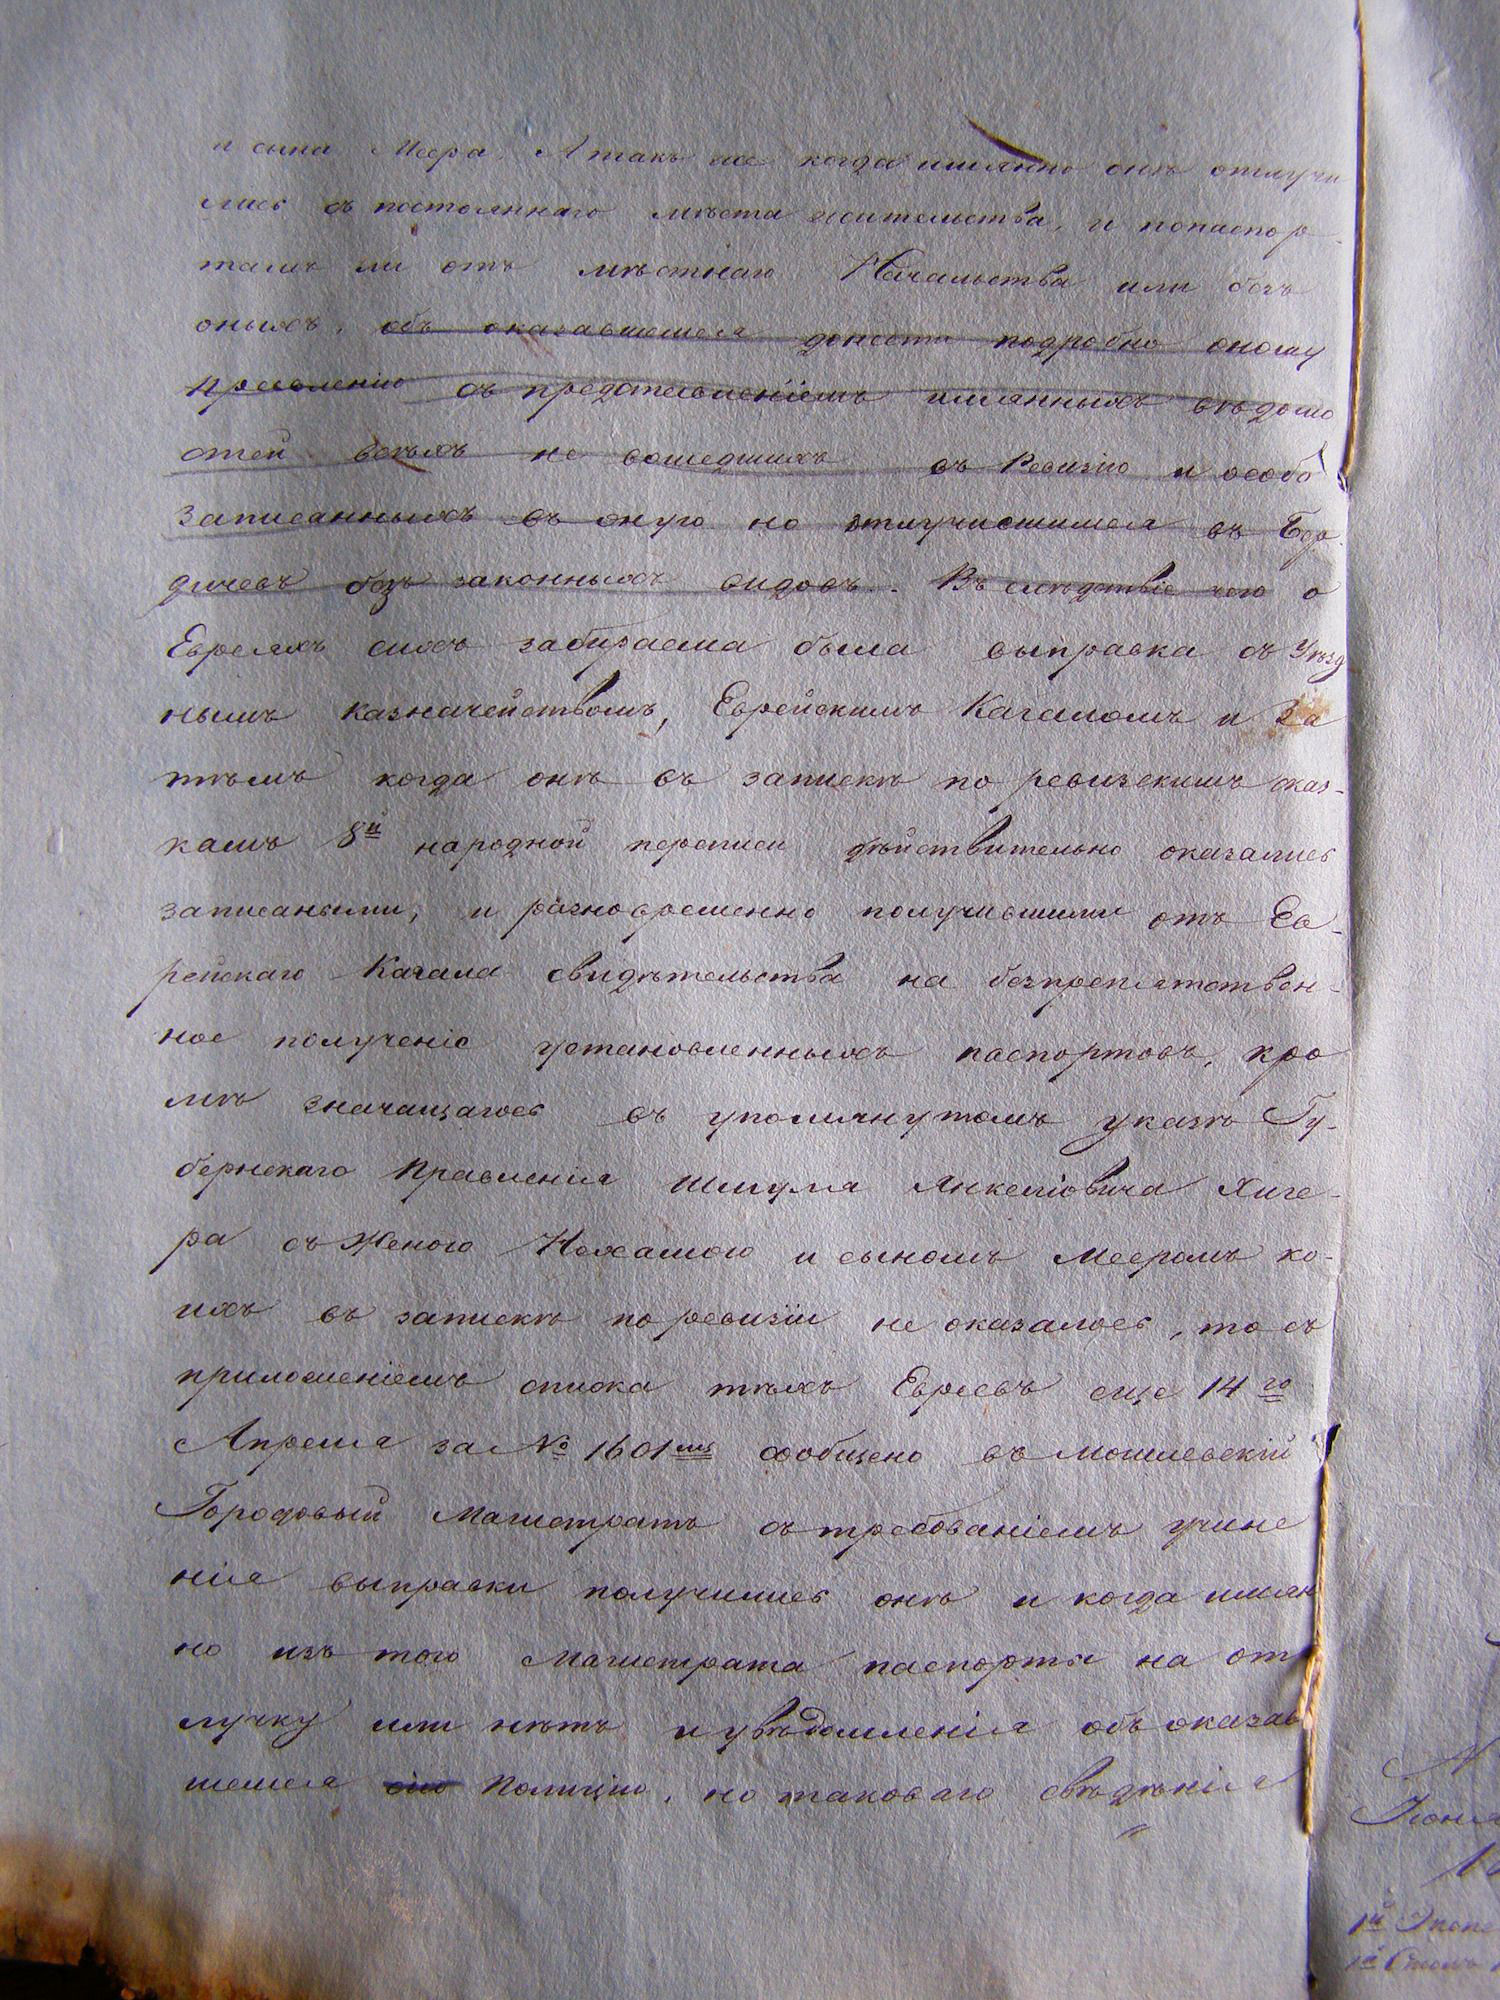 и сына Меера. А такъ же когда имянно онѣ отлучи
лись съ постояннаго мѣста жительства, и попаспор
тамъ ли отъ мѣстнаго Начальства или безъ
оныхъ, объ оказавшемся донести подробно оному
правленію съ представленіемъ имянныхъ вѣдомо
стей всѣхъ не вошедшихъ въ Ревизію и особо
записанныхъ въ оную но отлучившимся въ Бер
дичевъ безъ законныхъ видовъ. Въ слѣдствіе чего о
Евреяхъ сихъ забираема была выправка съ Уѣзд
нымъ казначействомъ, Еврейскимъ Кагаломъ и за
тѣмъ когда онѣ въ запискѣ по ревизскимъ сказ-
камъ 8й народной переписи дѣйствительно оказались
записаными, и разновременно получившими отъ Ев-
рейскаго Кагала свидѣтельства на безпрепятствен-
ное полученіе установленныхъ паспортовъ, кро
мѣ значащагось въ упомянутомъ указѣ Гу-
бернскаго Правленія Шмуля Янкеліовича Хиге-
ра съ Женою Нехамою и сыномъ Мееромъ ко-
ихъ въ запискѣ по ревизіи не оказалось, то съ
приложеніемъ списка тѣхъ Евреевъ еще 14го
Апреля за № 1601мъ сообщено въ Могилевскій
Городовый Магистратъ съ требованіемъ учине
нія выправки получилиcь онѣ и когда имян
но изъ того Магистрата паспорты на от
лучку или нѣтъ и увѣдомленія объ оказав
шемся сію Полицію, но таковаго свѣдѣнія
Іюня
1й